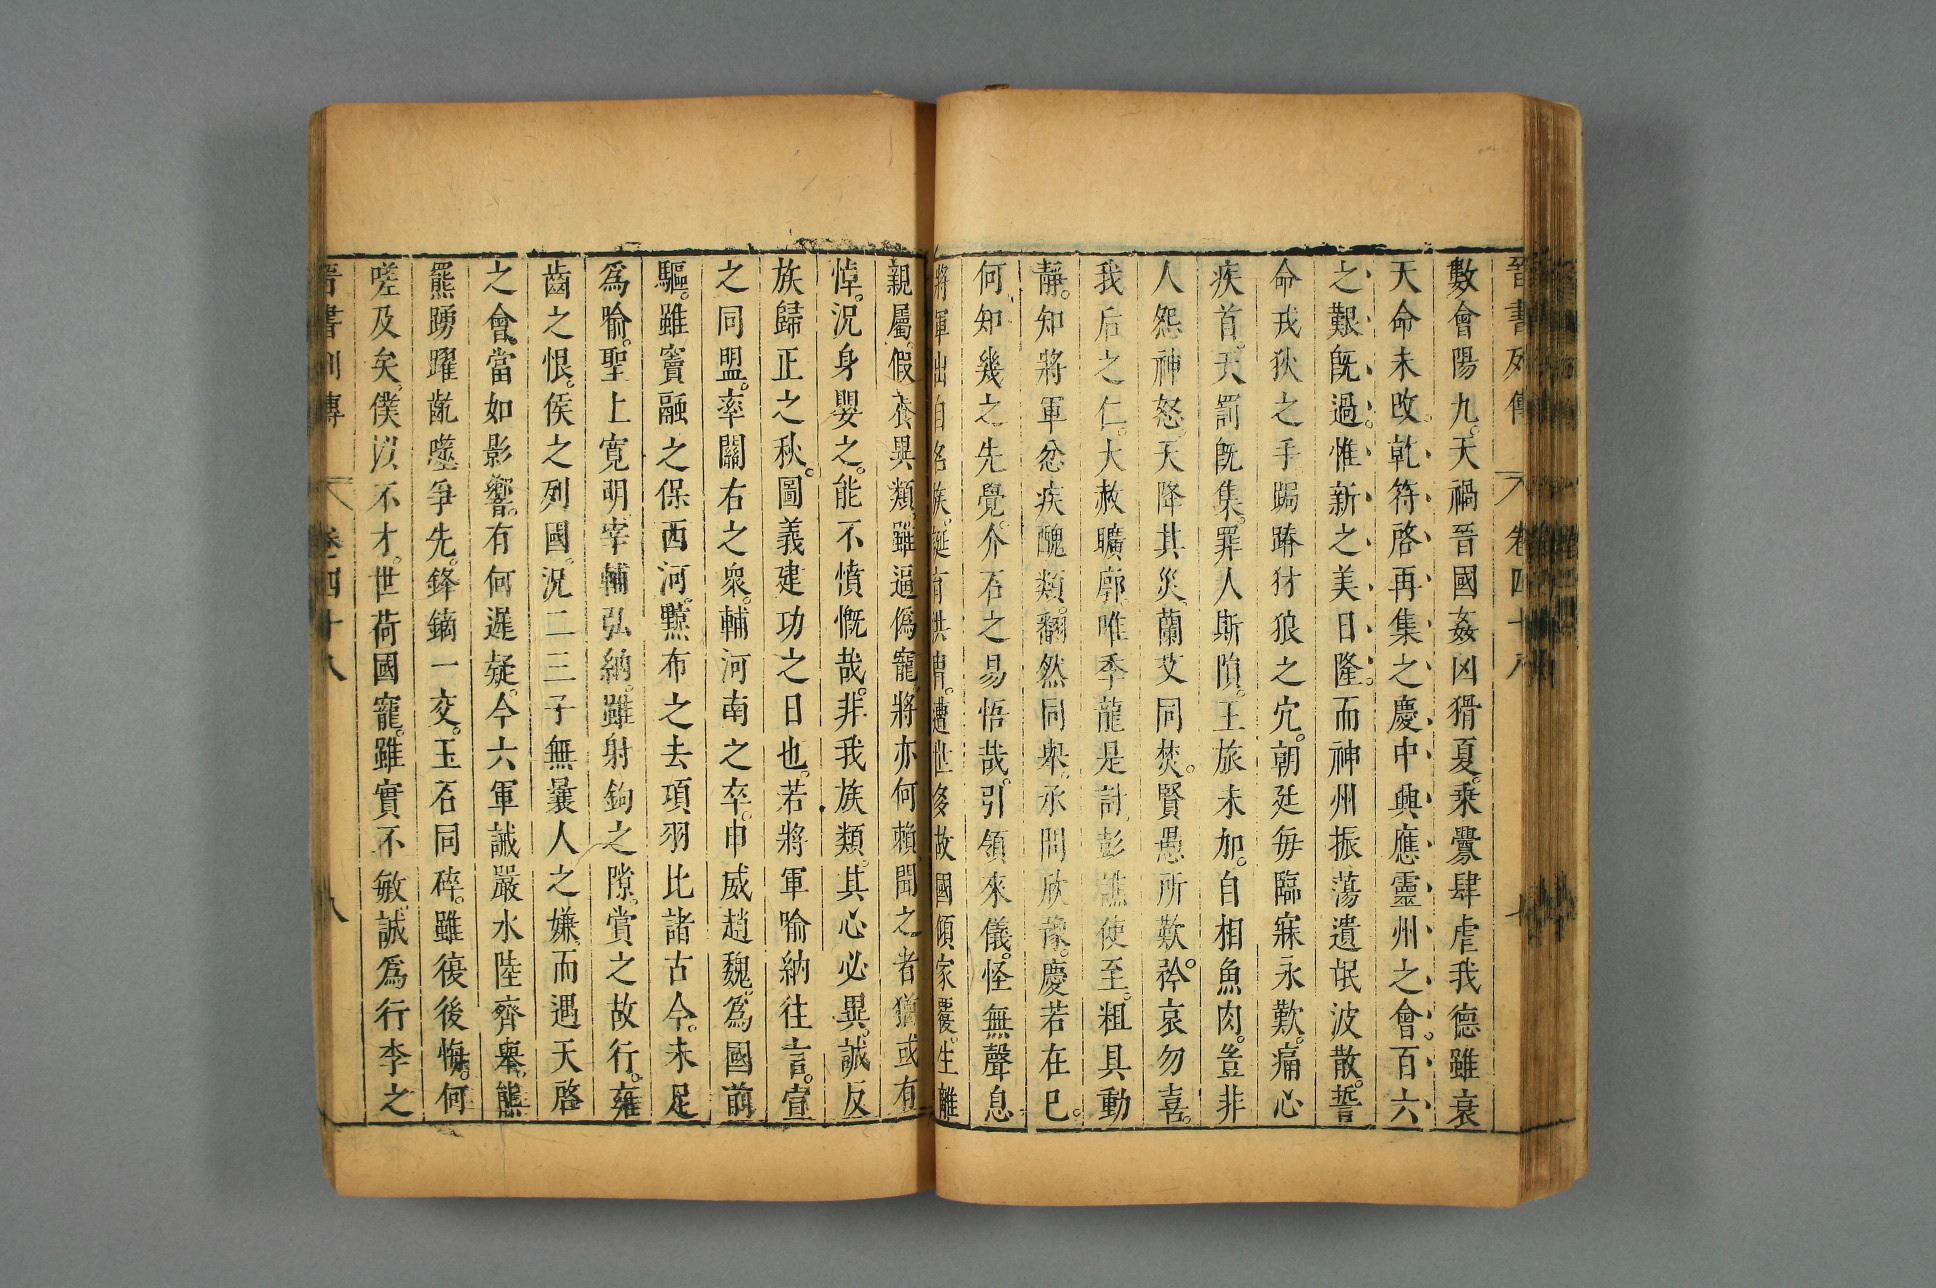 晉書列傳 卷四十八 七
數會陽九。天禍晉國姦凶猾夏。乘釁肆虐我德雖衰
天命未改。乾符啓再集之慶中興應靈州之會。百六
之艱旣過。惟新之美日隆。而神州振蕩遺氓波散。誓
命戎狄之手跼蹐豺狼之穴。朝廷每臨寐永歎。痛心
疾首。天罰旣集。罪人斯隕。王旅未加。自相魚肉。豈非
人怨神怒。天降其災。蘭艾同焚。賢愚所歎。矜哀勿喜。
我后之仁。大赦曠廓。唯季龍是討。彭譙使至。粗具動
靜。知將軍忿疾醜類。翻然同舉。承問欣豫。慶若在已。
何知幾之先覺。介石之易悟哉。引領來儀。怪無聲息
將軍出自名族。誕育洪胄。遭世多故國傾家覆。生離
親屬。假養異類。雖逼僞寵。將亦何賴。聞之者猶或有
悼。況身嬰之。能不憤慨哉。非我族類。其心必異。誠反
族歸正之秋。圖義建功之日也。若將軍喻納往言。宣
之同盟。率關右之衆。輔河南之卒。申威趙魏。爲國前
驅。雖竇融之保西河。黥布之去項羽比諸古今。未足
爲喻。聖上寬明宰輔弘納。雖射鉤之隙。賞之故行。雍
齒之恨。侯之列國。況二三子無曩人之嫌。而遇天啓
之會。當如影響。有何遲疑。今六軍誡嚴水陸齊舉。熊
羆踴躍齔噬爭先。鋒鏑一交。玉石同碎。雖復後悔。何
嗟及矣。僕以不才。世荷國寵。雖實不敏。誠爲行李之
晉書列傳 卷四十八 八